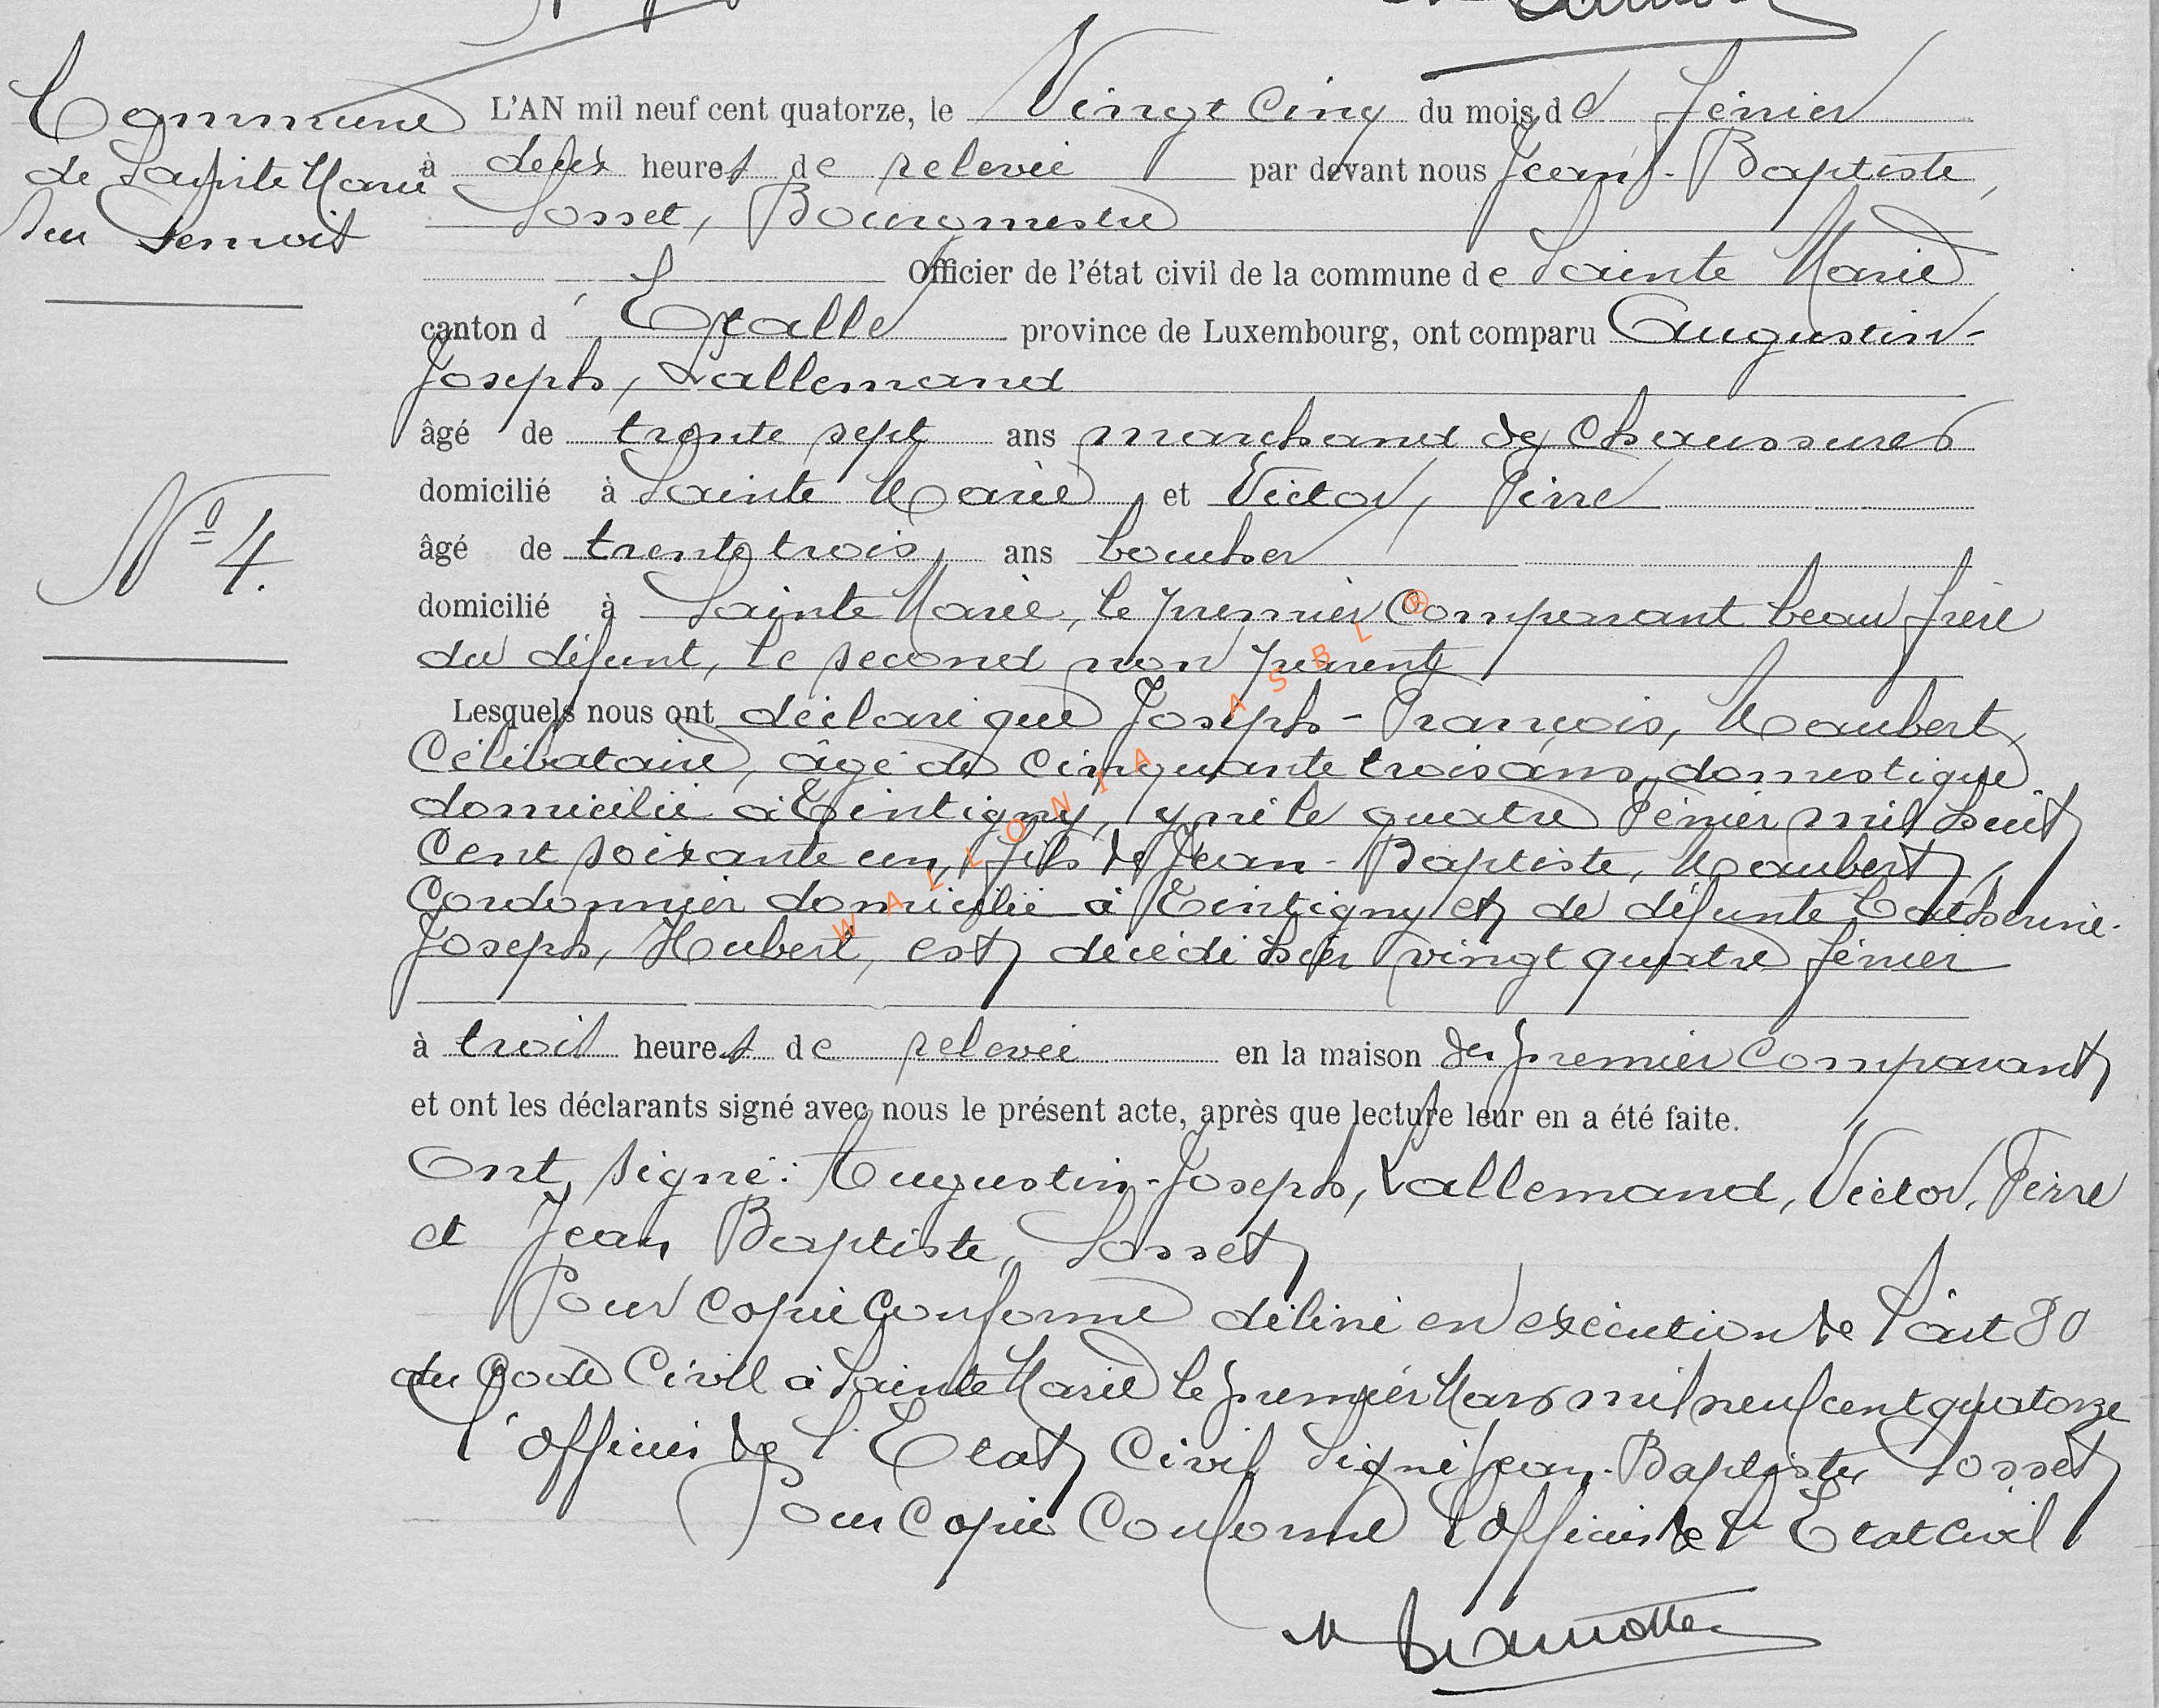 Commune
de Sainte Marie
sur Semois
N° 4.
L'AN mil neuf cent quatorze, le Vingt cinq du mois de février
à deux heures de relevée par devant nous Jean-Baptiste,
Sosset, Bourgmestre
Officier de l'état civil de la commune de Sainte Marie
canton d'Etalle province de Luxembourg, ont comparu Augustin-
Joseph, Lallemand
âgé de trente sept ans marchand de chaussures
domicilié à Sainte Marie et Victor, Pirre
âgé de trente trois ans boucher
domicilié à Sainte Marie, le premier comparant beau frère
du défunt, le second non parent
Lesquels nous ont déclaré que Joseph-François, Maubert,
Célibataire, âgé de cinquante trois ans, domestique
domicilié à Tintigny, y né le quatre février mil huit
cent soixante un, fils de Jean-Baptiste, Maubert,
Cordonnier domicilié à Tintigny et de défunte Catherine-
Joseph, Hubert, est décédé hier vingt quatre février
à trois heures de relevée en la maison du premier comparant
et ont les déclarants signé avec nous le présent acte, après que lecture leur en a été faite.
Ont signé: Augustin-Joseph, Lallemand, Victor, Pirre
et Jean Baptiste, Sosset
Pour copie conforme délivré en exécution de l'art 80
du Code Civil à Sainte Marie le premier Mars mil neuf cent quatorze
l'officier de l'Etat Civil Signé Jean-Baptiste Sosset
Pour Copie Conforme l'officier de l'Etat Civil
WALLONIA ASBL ®